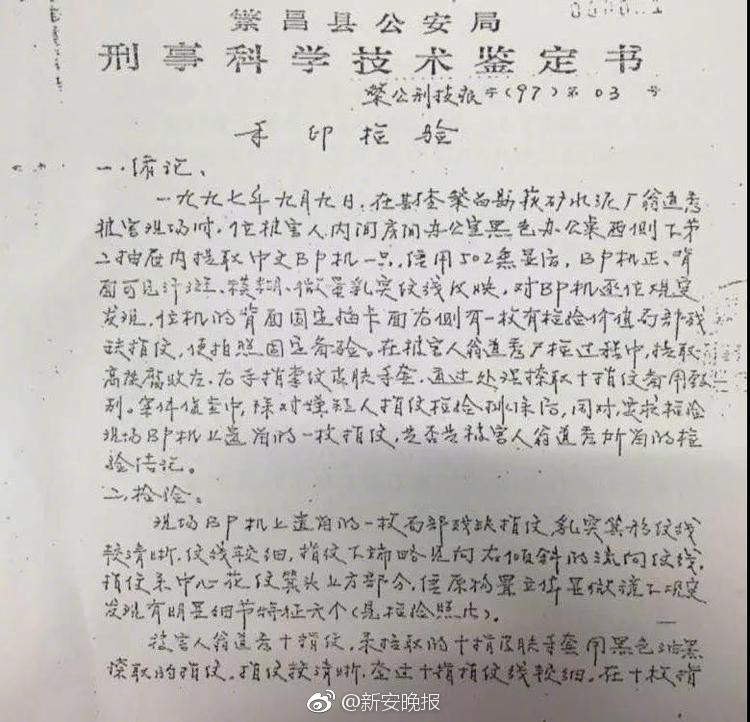 繁昌县公安局
刑事科学技术鉴定书
繁公刑技痕字(97)第03号
手印检验
一、绪论、
一九九七年九月九日,在勘查繁昌县荻矿水泥厂翁道秀
被害现场时,位被害人内间房间办公室黑色办公桌西侧下第
二抽屉内提取中文BP机一只,使用502熏显后,BP机正、背
面可见汗斑、模糊、微量乳突纹线反映,对BP机逐位观察
发现,位机的背面固定插卡面右侧有一枚有检验价值局部残
缺指纹,便拍照固定备验。在被害人翁道秀尸检过程中,提取
高度腐败左、右手指掌纹皮肤手套,通过处理捺取十指纹备用致
别。案件侦查中,除对嫌疑人指纹检验排除后,同时,要求检验
现场BP机上遗留的一枚指纹,是否是被害人翁道秀所留的检
验结论。
二、检验。
现场BP机上遗留的一枚局部残缺指纹,乳突箕形纹线
较清晰,纹线较细,指纹下端略见向右倾斜的流向纹线,
指位系中心花纹箕头上方部分,使原物置立体显微镜下观察
发现有明显细节特征六个(见检验照片)。
被害人翁道秀十指纹,系提取的十指皮肤手套用黑色油墨
捺取的指纹,指纹较清晰,查过十指指纹线较细,在十枚指
@新安晚报